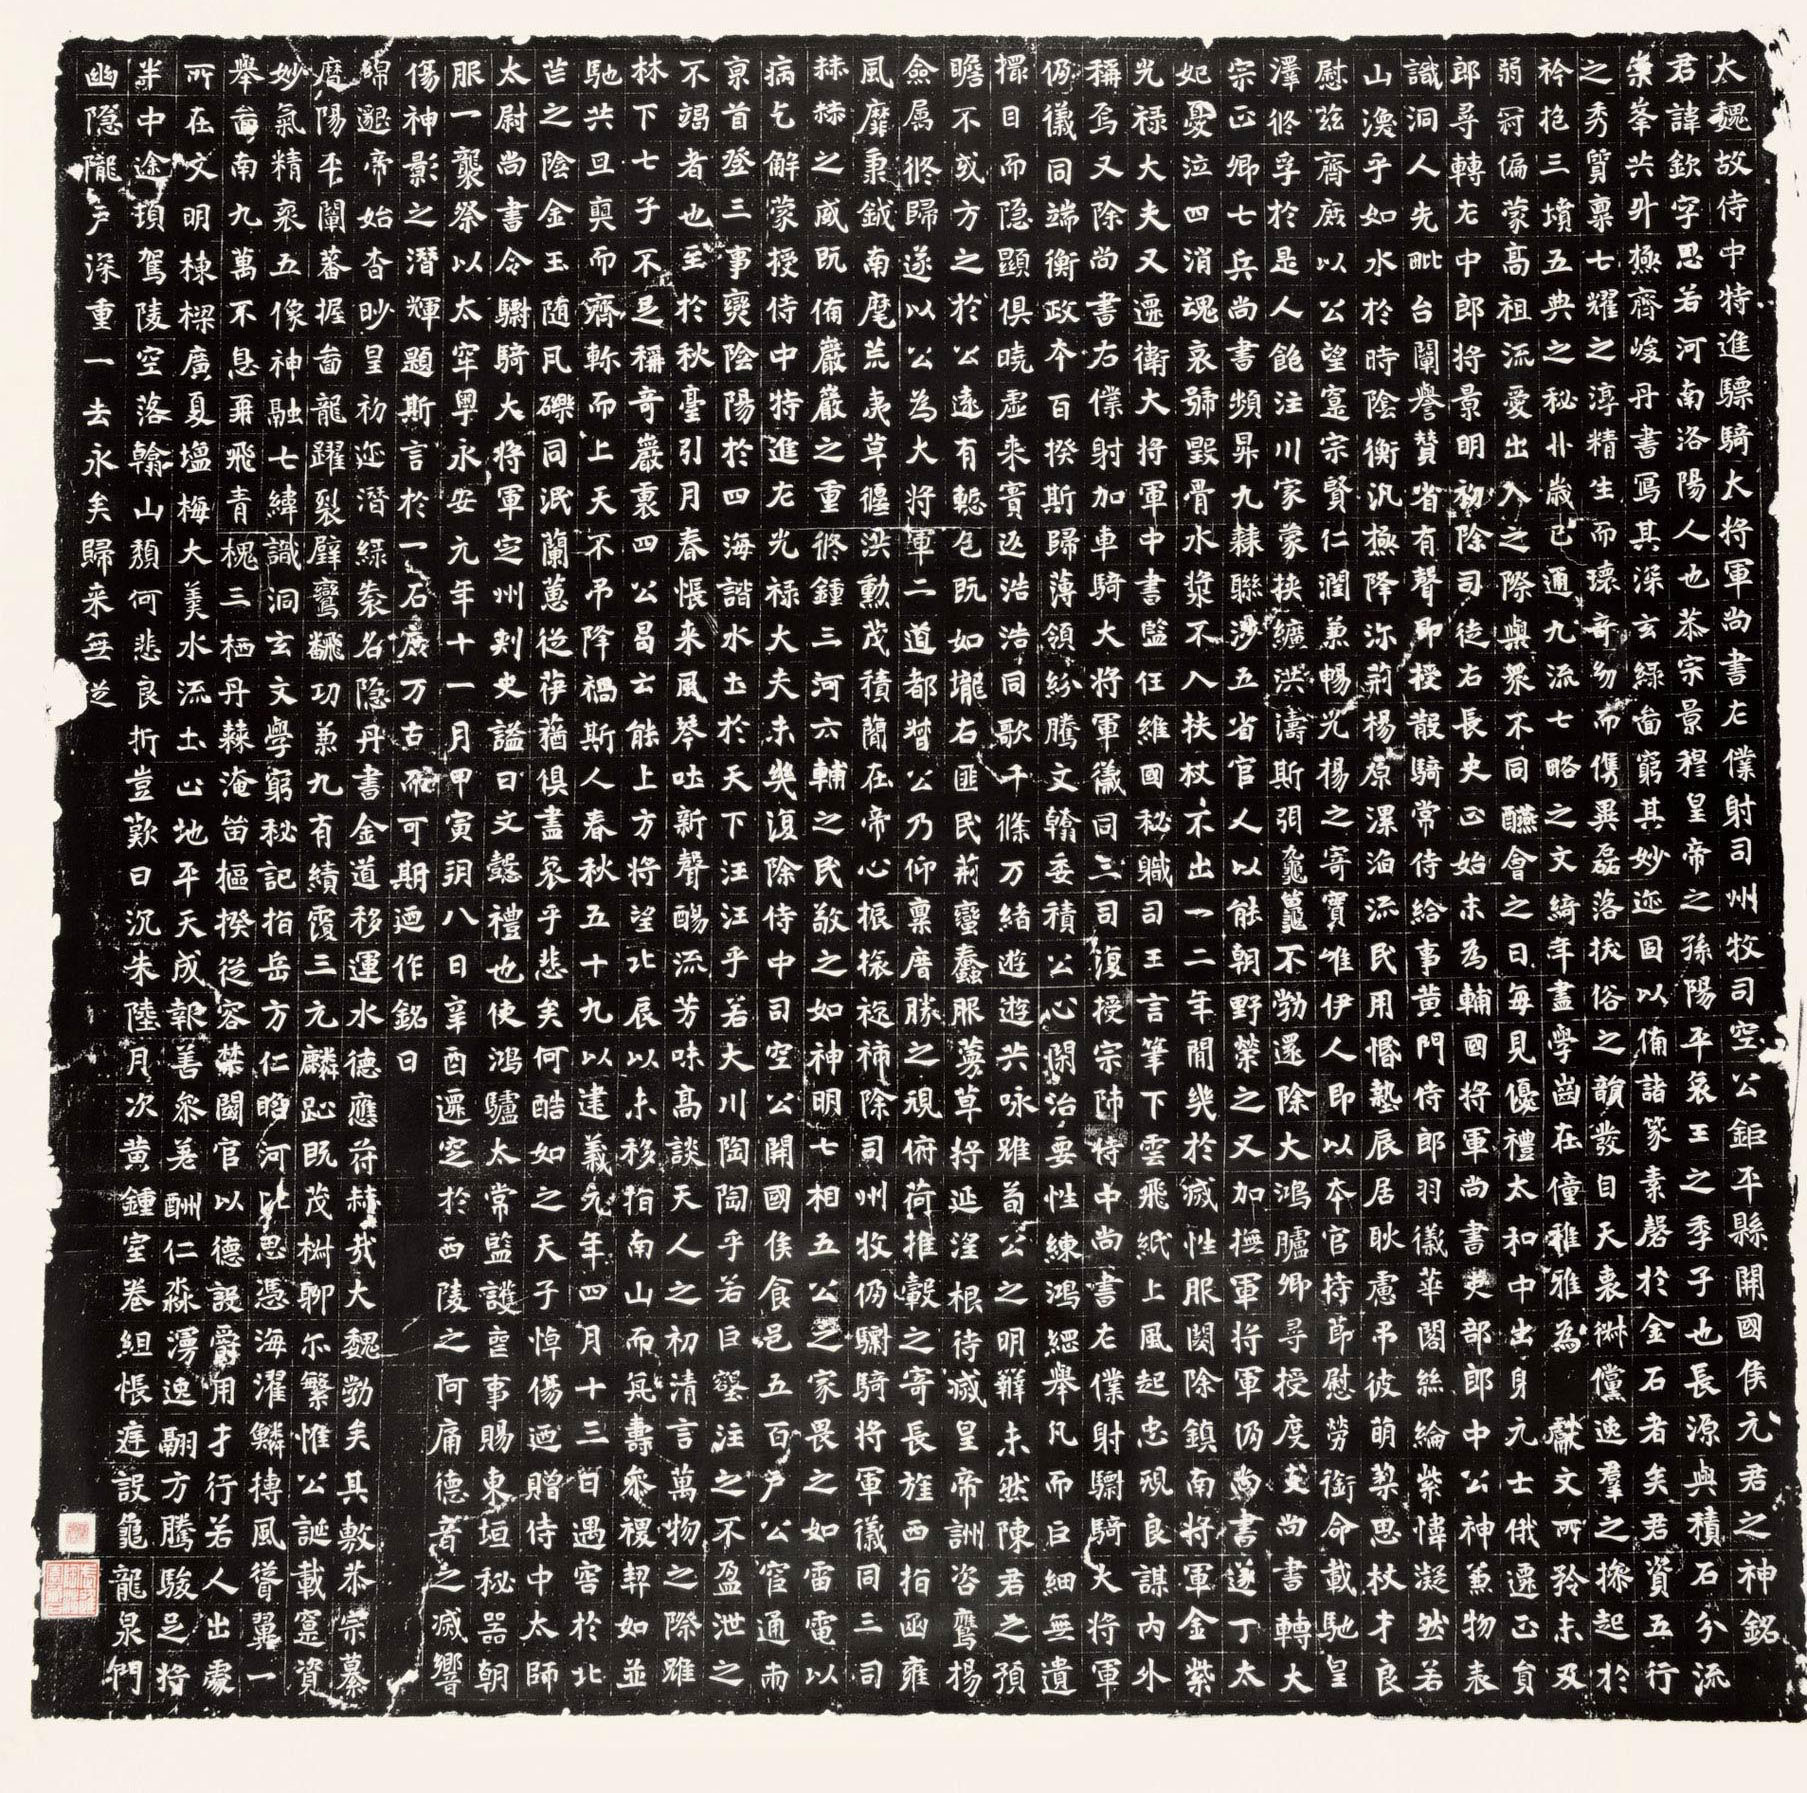 大魏故侍中特進驃騎大將軍尚書左僕射司州牧司空公鉅平縣開國侯元君之神銘
君諱欽字思若河南洛陽人也恭宗景穆皇帝之孫陽平哀王之季子也長源與積石分流
崇峯共升極齊峻丹書寫其深玄綠啚窮其妙迹固以備諸篆素磬於金石者矣君資五行
之秀質稟七耀之淳精生而瓌奇幼而儁異磊落拔俗之韻發自天衷倜儻逸羣之操起於
衿抱三墳五典之秘卝歲已通九流七略之文綺年盡學齒在僮稚雅為 獻文所矜未及
弱冠偏蒙高祖流愛出入之際與眾不同醼會之日每見優禮太和中出身元士俄遷正員
郎尋轉左中郎將景明初除司徒右長史正始末為輔國將軍尚書吏部郎中公神兼物表
識洞人先毗台闡譽贊省有聲即授散騎常侍給事黃門侍郎羽儀華閣絲綸紫幃凝然若
山渙乎如水於時陰衡汎極降沴荊楊原漯洎流民用惛墊辰居耿慮弔彼萌棃思杖才良
慰茲齊庶以公望寔宗賢仁潤兼暢光揚之寄實唯伊人即以本官持節慰勞銜命載馳皇
澤修孚於是人飽注川家蒙挾纊洪濤斯弭龜鼉不勃還除大鴻臚卿尋授度支尚書轉大
宗正卿七兵尚書頻昇九棘聯涉五省官人以能朝野榮之又加撫軍將軍仍尚書遂丁太
妃憂泣四消魂哀號毀骨水漿不入扶杖不出一二年間幾於滅性服闋除鎮南將軍金紫
光祿大夫又遷衛大將軍中書監任維國秘職司王言筆下雲飛紙上風起忠規良謀內外
稱焉又除尚書右僕射加車騎大將軍儀同三司復授宗師特中尚書左僕射驃騎大將軍
仍儀同端衡政本百揆斯歸薄領紛騰文翰委積公心閑治要性練鴻綱舉凡而巨細無遺
擐目而隱顯俱曉虛來實返浩浩同歌千條万緒遊遊共咏雖荀公之明辯未然陳君之預
瞻不或方之於公遠有慙色既如壠右匪民荊蠻蠢服蕚草將延滋根待滅皇帝詶咨鷹揚
僉屬修歸遂以公為大將軍二道都督公乃仰稟廟勝之規俯荷推轂之寄長旌西指函雍
風靡秉鉞南麾荒夷草偃洪勳茂積簡在帝心振旅旋旆除司州牧仍驃騎將軍儀同三司
赫赫之威既備嚴嚴之重修鍾三河六輔之民敬之如神明七相五公之家畏之如雷電以
病乞解蒙授侍中特進左光祿大夫未幾復除侍中司空公開國侯食邑五百戶公窅通雨
京首登三事燮陰陽於四海諧水土於天下汪汪乎若大川陶陶乎若巨壑注之不盈泄之
不竭者也至於秋臺引月春悵來風琴吐新聲醑流芳味高談天人之初清言萬物之際雖
林下七子不足稱奇巖裏四公曷云能上方將望北辰以未移指南山而萁壽參禝契如並
馳共旦奭而齊斬而上天不弔降禍斯人春秋五十九以建義元年四月十三日遇害於北
芒之陰金玉隨凡礫同泯蘭蕙從荓蕕俱盡哀乎悲矣何酷如之天子悼傷迺贈侍中太師
太尉尚書令驃騎大將軍定州刺史謚曰文懿禮也使鴻臚太常監護喪事賜東垣秘器朝
服一襲祭以太牢粵永安元年十一月甲寅朔八日辛酉遷窆於西陵之阿痛德音之滅響
傷神影之潛輝題斯言於一石庶万古而可期迺作銘曰
綿邈帝始杳眇皇初迹潛綠裘名隱丹書金道移運水德應苻赫哉大魏勃矣其敷恭宗纂
曆陽平闡蕃握啚龍躍裂壁鸞飜功兼九有績覆三元麟趾既茂椒聊尒繁惟公誕載寔資
妙氣精裒五像神融七緯識洞玄文學窮秘記指岳方仁瞻河比思憑海濯鱗摶風聳翼一
舉啚南九萬不息爾飛青槐三栖丹棘淹笛樞揆從容禁闥官以德設爵用才行若人出處
所在文明棟樑廣夏塩梅大羹水流土止地平天成報善參差酬仁淼漫逸翮方騰駿足將
半中途摧駕陵空落翰山頹何悲良折豈歎日沉朱陸月次黃鍾室卷組悵庭設龜龍泉門
幽隱隴戶深重一去永矣歸來無從